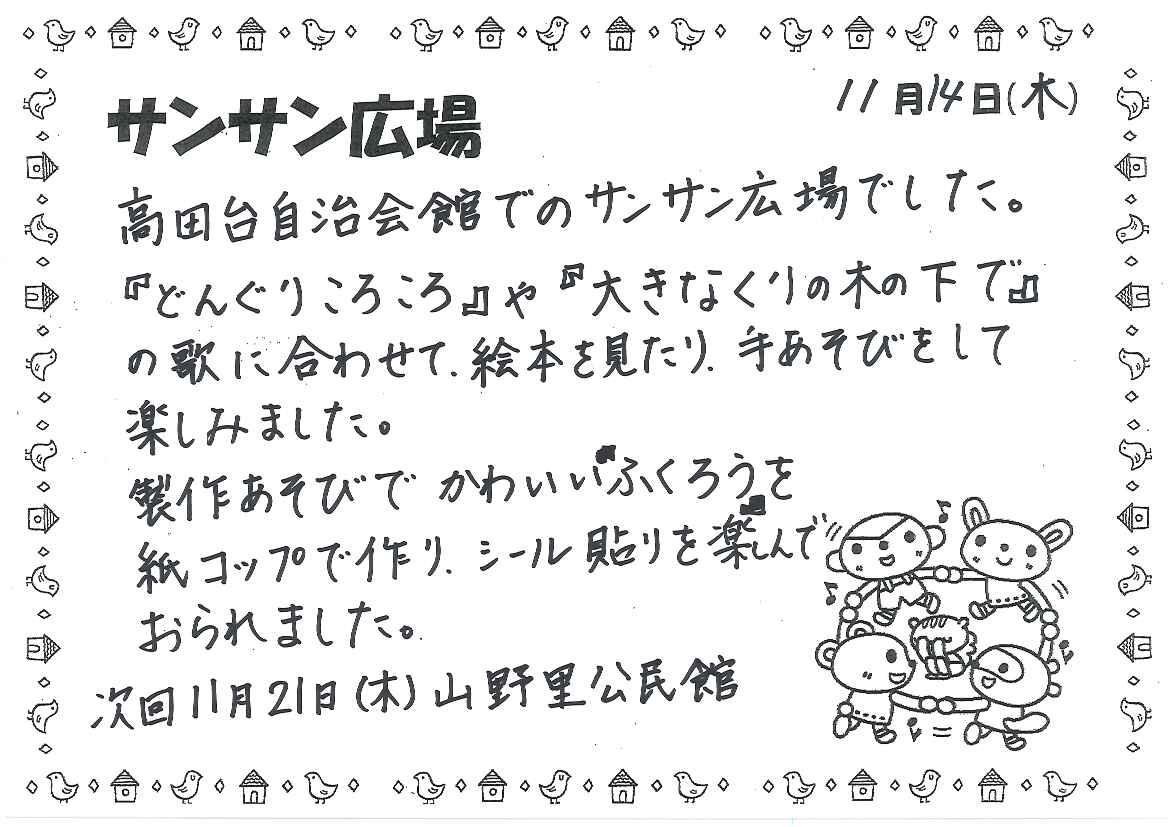 11月14日(木)
サンサン広場
高田台自治会館でのサンサン広場でした。
『どんぐりころころ』や『大きなくりの木の下で』
の歌に合わせて、絵本を見たり、手あそびをして
楽しみました。
製作あそびでかわいい『ふくろう』を
紙コップで作り、シール貼りを楽しんで
おられました。
次回11月21日(木)山野里公民館